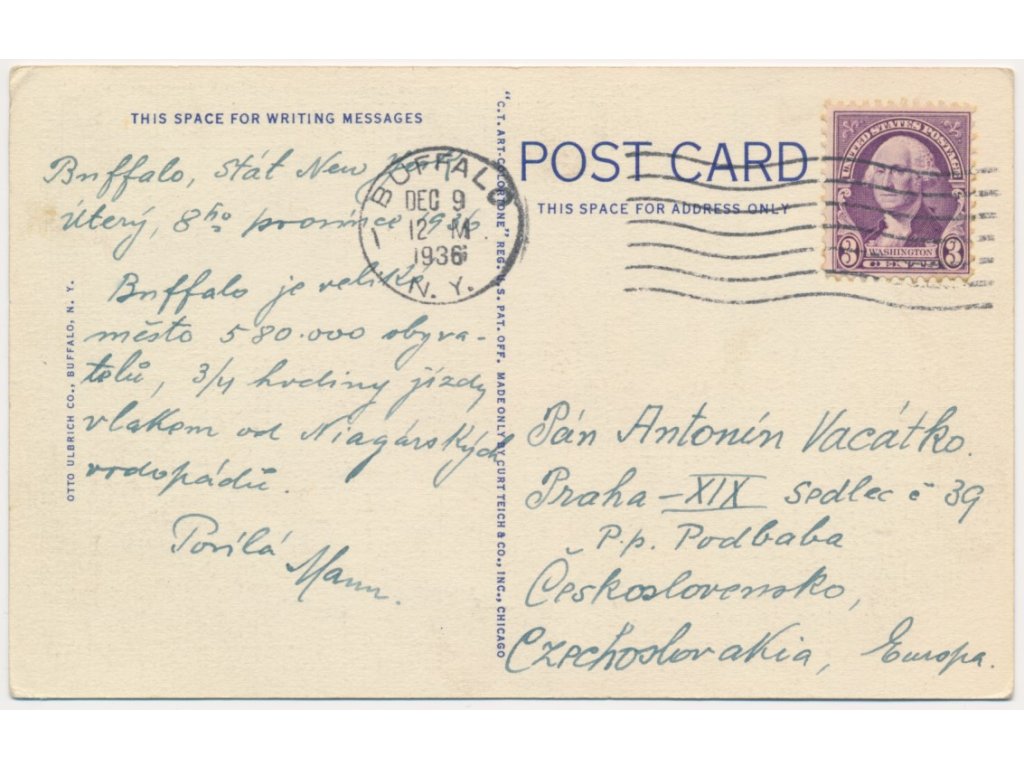 THIS SPACE FOR WRITING MESSAGES
Buffalo, Stát New York
Úterý, 8ho prosince 1936
Buffalo je veliké
město 580.000 obyva-
telů, 3/4 hodiny jízdy
vlakem od Niagárských
vodopádů.
Posílá
Mann.
OTTO ULBRICH CO., BUFFALO, N. Y.
"C.T. ART-COLORTONE" REG. U.S. PAT. OFF. MADE ONLY BY CURT TEICH & CO., INC., CHICAGO
BUFFALO
DEC 9
12 M
1936
N. Y.
1
POST CARD
THIS SPACE FOR ADDRESS ONLY
UNITED STATES POSTAGE
WASHINGTON
3 CENTS 3
Pán Antonín Vacátko.
Praha - XIX Sedlec č 39
P.p. Podbaba
Československo,
Czechoslovakia, Europa.